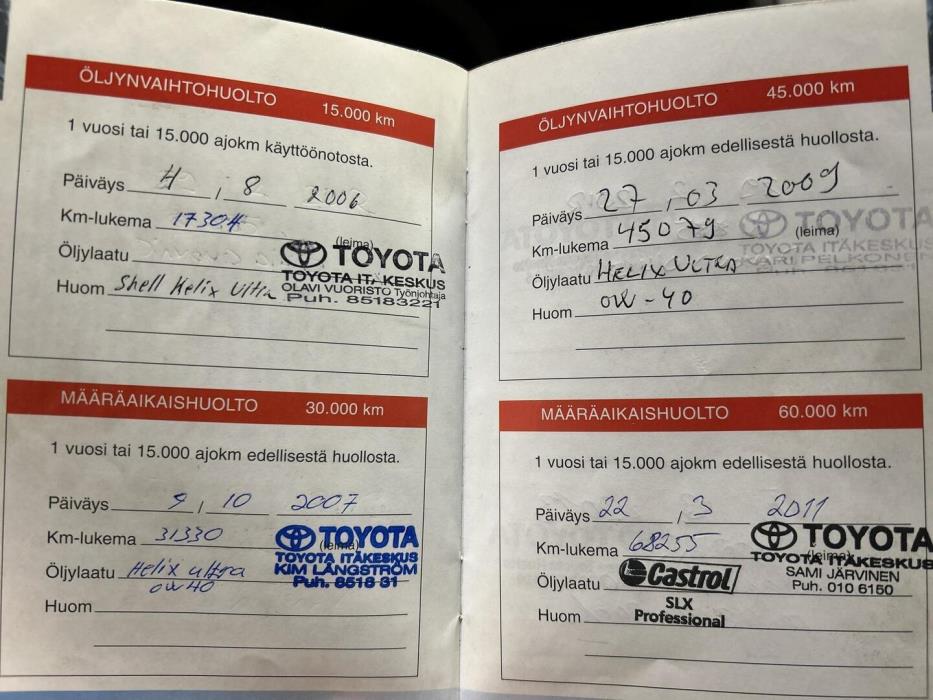 ÖLJYNVAIHTOHUOLTO 15.000 km
1 vuosi tai 15.000 ajokm käyttöönotosta.
Päiväys 4 , 8 2006
Km-lukema 17304
(leima)
Öljylaatu
TOYOTA
TOYOTA ITÄKESKUS
Huom Shell Helix Ultra
OLAVI VUORISTO Työnjohtaja
Puh. 85183221
MÄÄRÄAIKAISHUOLTO 30.000 km
1 vuosi tai 15.000 ajokm edellisestä huollosta.
Päiväys 9 , 10 2007
Km-lukema 31330
(leima)
TOYOTA
TOYOTA ITÄKESKUS
KIM LÅNGSTRÖM
Puh. 8518 31
Öljylaatu Helix ultra
0W40
Huom
ÖLJYNVAIHTOHUOLTO 45.000 km
1 vuosi tai 15.000 ajokm edellisestä huollosta.
Päiväys 27 , 03 2009
Km-lukema 45079
(leima)
TOYOTA
TOYOTA ITÄKESKUS
KARI PELKONEN
Öljylaatu HELIX ULTRA
0W-40
Huom
MÄÄRÄAIKAISHUOLTO 60.000 km
1 vuosi tai 15.000 ajokm edellisestä huollosta.
Päiväys 22 , 3 2011
Km-lukema 68255
(leima)
TOYOTA
TOYOTA ITÄKESKUS
SAMI JÄRVINEN
Puh. 010 6150
Öljylaatu Castrol
SLX
Professional
Huom